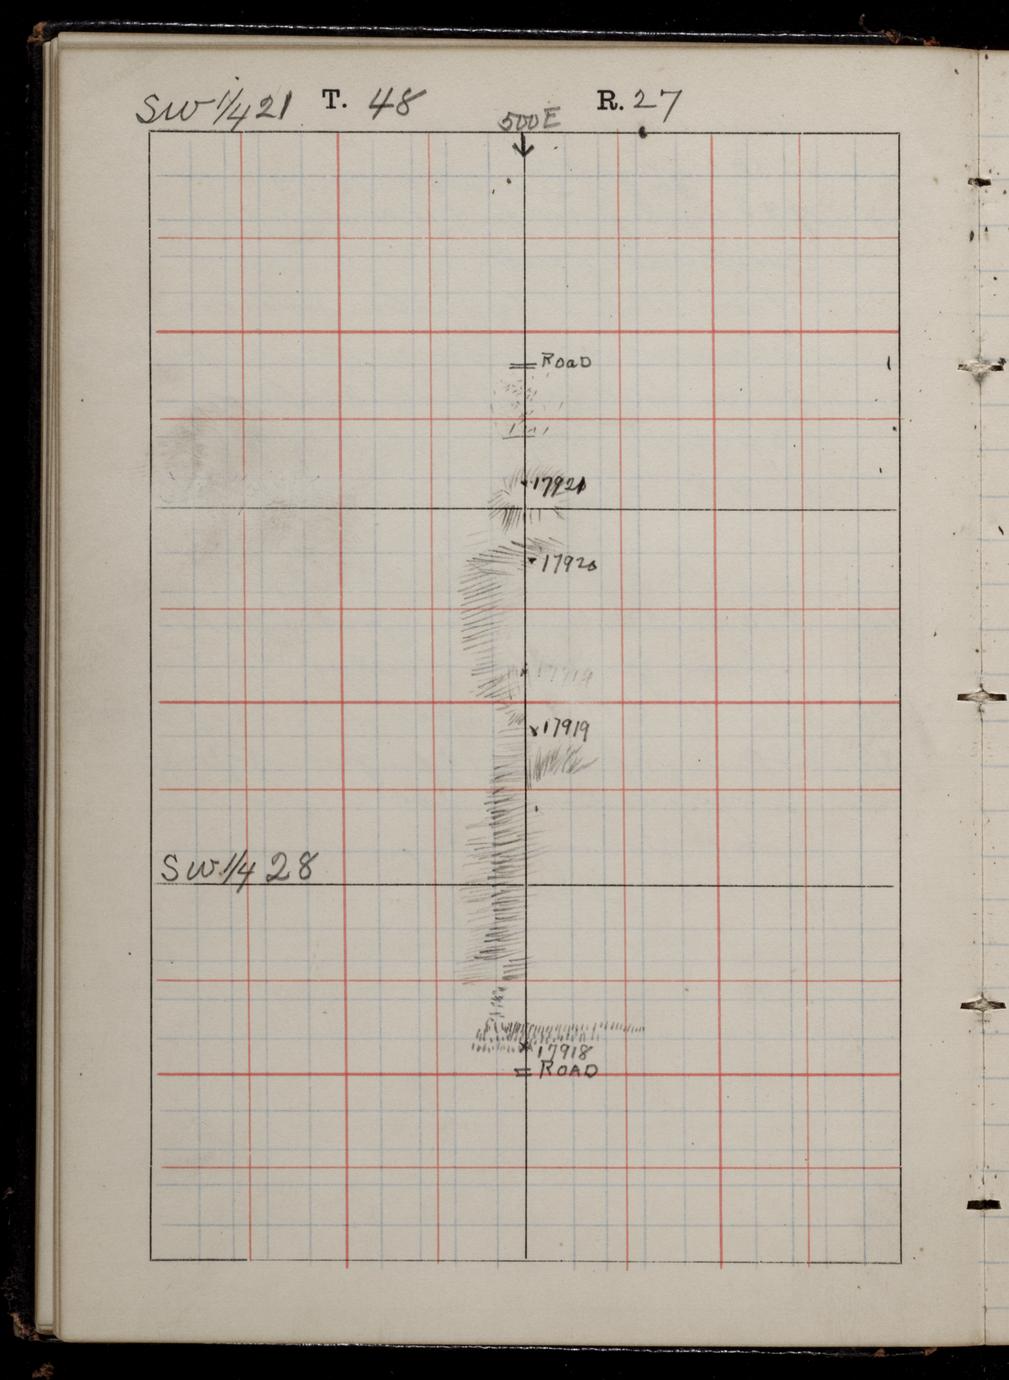 SW 1/4 21 T. 48 R. 27
500E
Road
17921
17920
17919
17919
SW 1/4 28
17918
ROAD